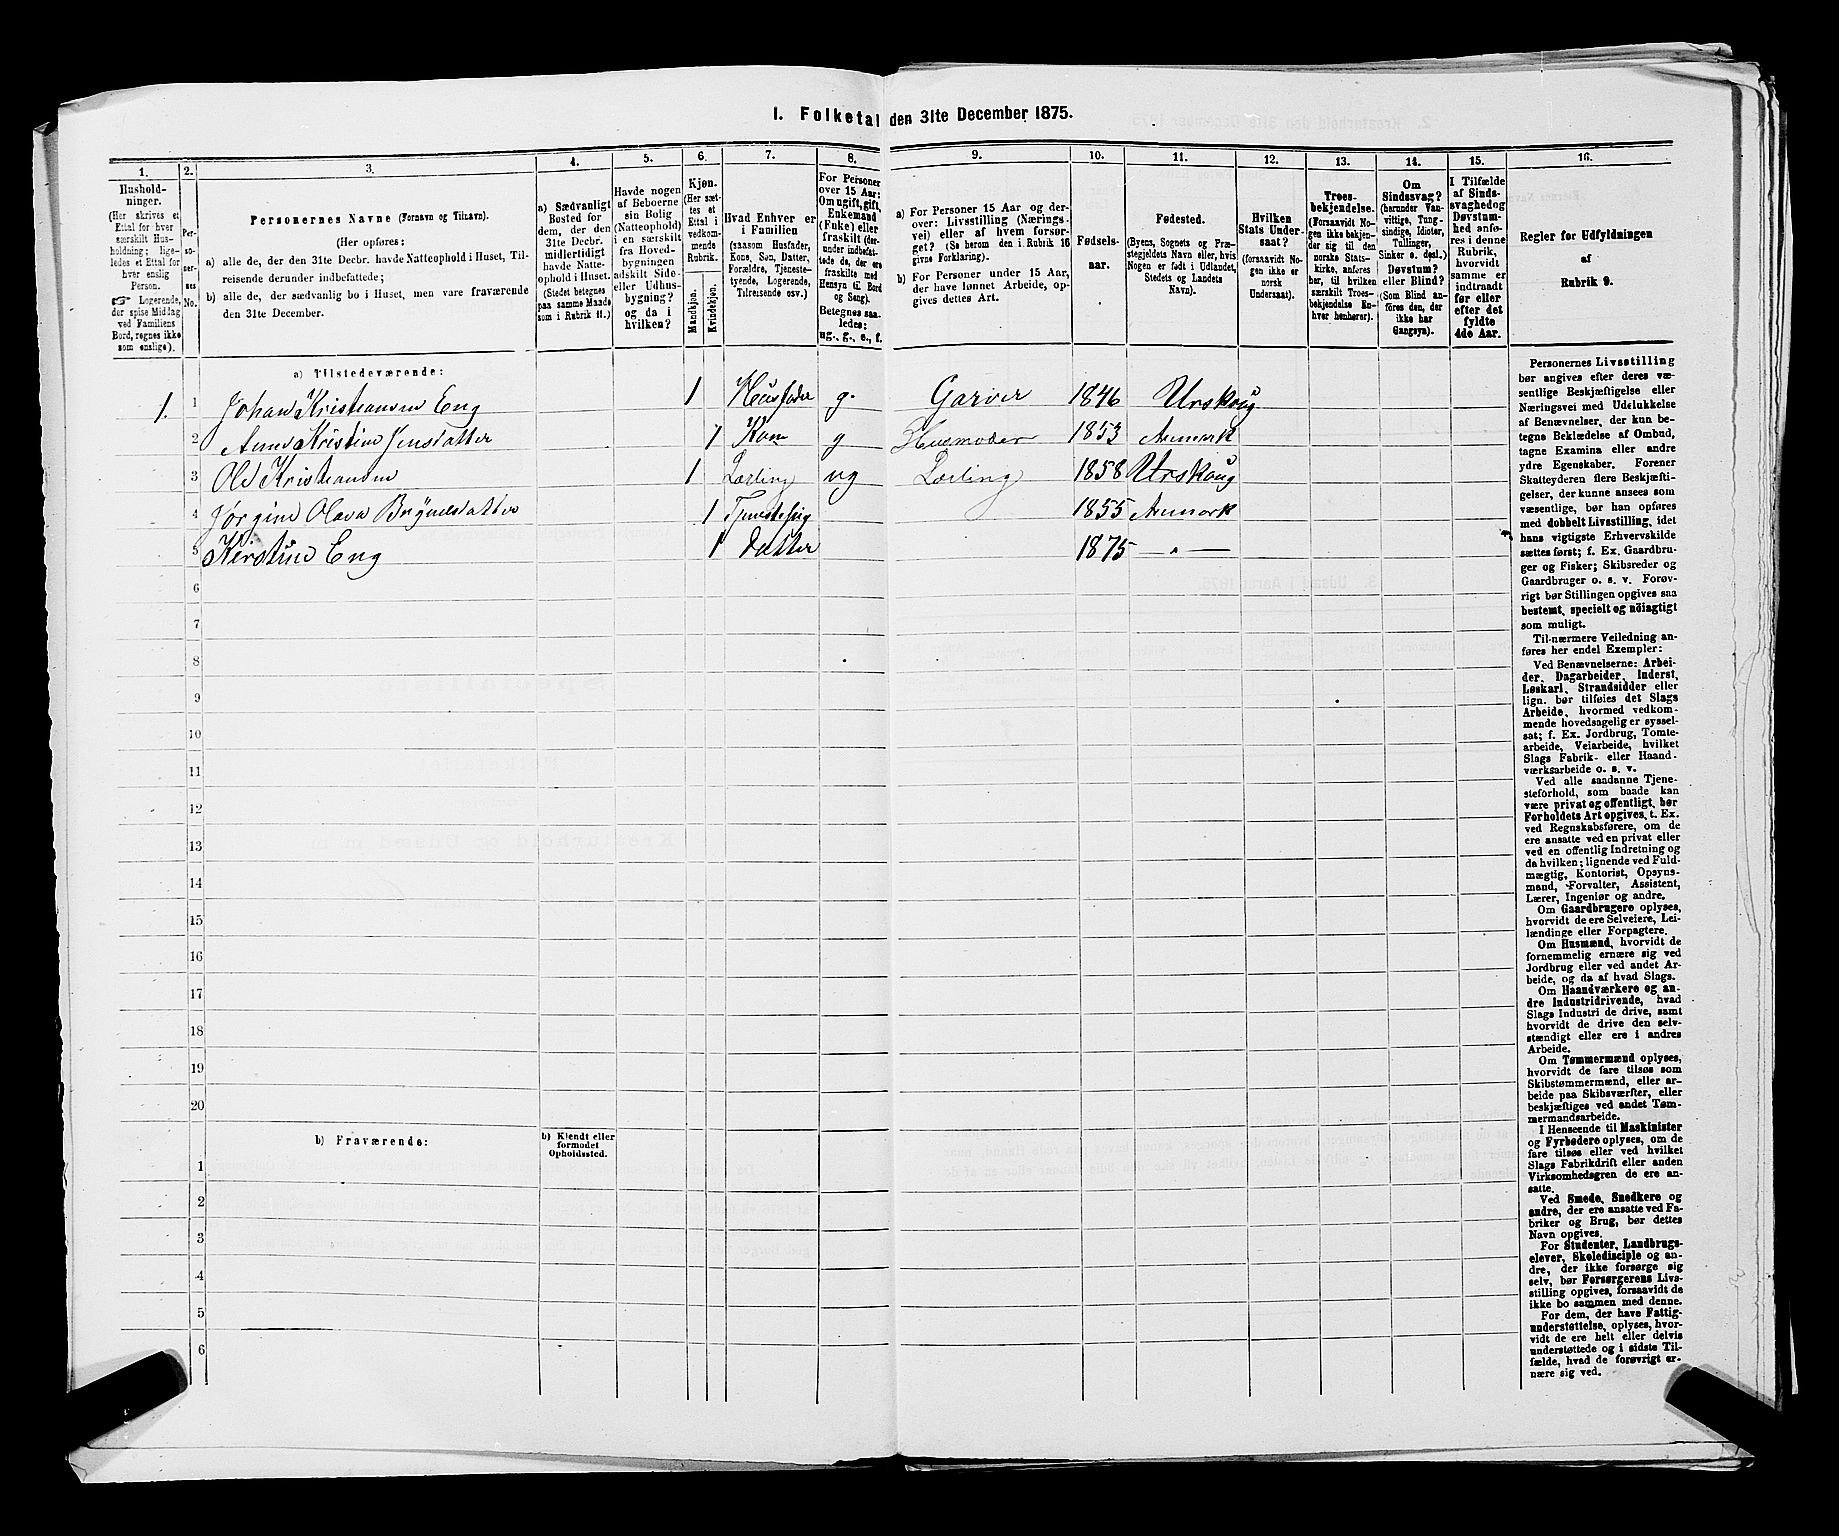 I. Folketal den 31te December 1875.
1. 2. 3. 4. 5. 6. 7. 8. 9. 10. 11. 12. 13. 14. 15. 16.
Hushold-
ninger.
(Her skrives et
Ettal for hver
særskilt Hus-
holdning; lige-
ledes et Ettal for
hver enslig
Person.
☞ Logerende,
der spise Middag
ved Familiens
Bord, regnes ikke
som enslige).
Per-
so-
ner-
nes
No.
Personernes Navne (Fornavn og Tilnavn).
(Her opføres:
a) alle de, der den 31te Decbr. havde Natteophold i Huset, Til-
reisende derunder indbefattede;
b) alle de, der sædvanlig bo i Huset, men vare fraværende
den 31te December.
a) Sædvanligt
Bosted for
dem, der den
31te Decbr.
midlertidigt
havde Natte-
ophold i Huset.
(Stedet betegnes
paa samme Maade
som i Rubrik 11.)
Havde nogen
af Beboerne
sin Bolig
(Natteophold)
i en særskilt
fra Hoved-
bygningen
adskilt Side-
eller Udhus-
bygning?
og da i
hvilken?
Kjøn.
(Her sæt-
tes et
Ettal i
vedkom-
mende
Rubrik.
Mandkjøn.
Kvindekjøn.
Hvad Enhver er
i Familien
(saasom Husfader,
Kone, Søn, Datter,
Forældre, Tjeneste-
tyende, Logerende,
Tilreisende osv.)
For Personer
over 15 Aar:
Om ugift, gift,
Enkemand
(Enke) eller
fraskilt (der-
under indbefat-
tede de, der ere
fraskilte med
Hensyn til Bord
og Seng).
Betegnes saa-
ledes:
ug., g., e., f.
a) For Personer 15 Aar og der-
over: Livsstilling (Nærings-
vei) eller af hvem forsør-
get? (Se herom den i Rubrik 16
givne Forklaring).
b) For Personer under 15 Aar,
der have lønnet Arbeide, op-
gives dettes Art.
Fødsels-
aar.
Fødested.
(Byens, Sognets og Præ-
stegjeldets Navn eller, hvis
Nogen er født i Udlandet,
Stedets og Landets
Navn).
Hvilken
Stats Under-
saat?
(forsaavidt No-
gen ikke er
norsk
Undersaat).
Troes-
bekjendelse.
(Forsaavidt No-
gen ikke bekjen-
der sig til den
norske Stats-
kirke, anføres
her, til hvilken
særskilt Troes-
bekjendelse En-
hver henhører).
Om
Sindssvag?
(herunder Van-
vittige, Tung-
sindige, Idioter,
Tullinger,
Sinker o. desl.)
Døvstum?
eller Blind?
(Som Blind an-
føres den, der
ikke har
Gangsyn).
I Tilfælde
af Sinds-
svaghedog
Døvstum-
hed anfø-
res i denne
Rubrik,
hvorvidt
samme er
indtraadt
før eller
efter det
fyldte
4de Aar.
Regler for Udfyldningen
af
Rubrik 9.
a) Tilstedeværende:
1. 1 Johan Kristiansen Eng 1 Husfader g. Garver 1846 Urskoug
2 Anne Kristine Jensdatter 1 Kone g Husmoder 1853 Aumark
3 Ole Kristiansen 1 Lærling ug Lærling 1858 Urskoug
4 Jørgine Olava 1 1855 Aumark
5 Kirstine Eng 1 datter 1875 — " —
6
7
8
9
10
11
12
13
14
15
16
17
18
19
20
b) Fraværende:
b) Kjendt eller
formodet
Opholdssted.
1
2
3
4
5
6
Personernes Livsstilling
bør angives efter deres væ-
sentlige Beskjæftigelse eller
Næringsvei med Udelukkelse
af Benævnelser, der kun be-
tegne Beklædelse af Ombud,
tagne Examina eller andre
ydre Egenskaber. Forener
Skatteyderen flere Beskjæfti-
gelser, der kunne ansees som
væsentlige, bør han opføres
med dobbelt Livsstilling, idet
hans vigtigste Erhvervskilde
sættes først; f. Ex. Gaardbru-
ger og Fisker; Skibsreder og
Gaardbruger o. s. v. Forøv-
rigt bør Stillingen opgives saa
bestemt, specielt og nöiagtigt
som muligt.
Til nærmere Veiledning an-
føres her endel Exempler:
Ved Benævnelserne: Arbei-
der, Dagarbeider, Inderst,
Løskarl, Strandsidder eller
lign. bør tilføies det Slags
Arbeide, hvormed vedkom-
mende hovedsagelig er syssel-
sat; f. Ex. Jordbrug, Tomte-
arbeide, Veiarbeide, hvilket
Slags Fabrik- eller Haand-
værksarbeide o. s. v.
Ved alle saadanne Tjene-
steforhold, som baade kan
være privat og offentligt, bør
Forholdets Art opgives, t. Ex.
ved Regnskabsførere, om de
ere ansatte ved en privat eller
ved en offentlig Indretning og
da hvilken; lignende ved Fuld-
mægtig, Kontorist, Opsyns-
mand, Forvalter, Assistent,
Lærer, Ingeniør og andre.
Om Gaardbrugere oplyses,
hvorvidt de ere Selveiere, Lei-
lændinge eller Forpagtere.
Om Husmænd, hvorvidt de
fornemmelig ernære sig ved
Jordbrug eller ved andet Ar-
beide, og da af hvad Slags.
Om Haandværkere og an-
dre Industridrivende, hvad
Slags Industri de drive, samt
hvorvidt de drive den selv-
stændigt eller ere i andres
Arbeide.
Om Tømmermænd oplyses,
hvorvidt de fare tilsøs som
Skibstømmermænd, eller ar-
beide paa Skibsværfter, eller
beskjæftiges ved andet Tøm-
mermandsarbeide.
I Henseende til Maskinister
og Fyrbødere oplyses, om de
fare tilsøs eller ved hvilket
Slags Fabrikdrift eller anden
Virksomhedsgren de ere an-
satte.
Ved Smede, Snedkere og
andre, der ere ansatte ved Fa-
briker og Brug, bør dettes
Navn opgives.
For Studenter, Landbrugs-
elever, Skoledisciple og an-
dre, der ikke forsørge sig
selv, bør Forsørgerens Livs-
stilling opgives, forsaavidt de
ikke bo sammen med denne.
For dem, der have Fattig-
understøttelse, oplyses, hvor-
vidt de ere helt eller delvis
understøttede og i sidste Til-
fælde, hvad de forøvrigt er-
nære sig ved.